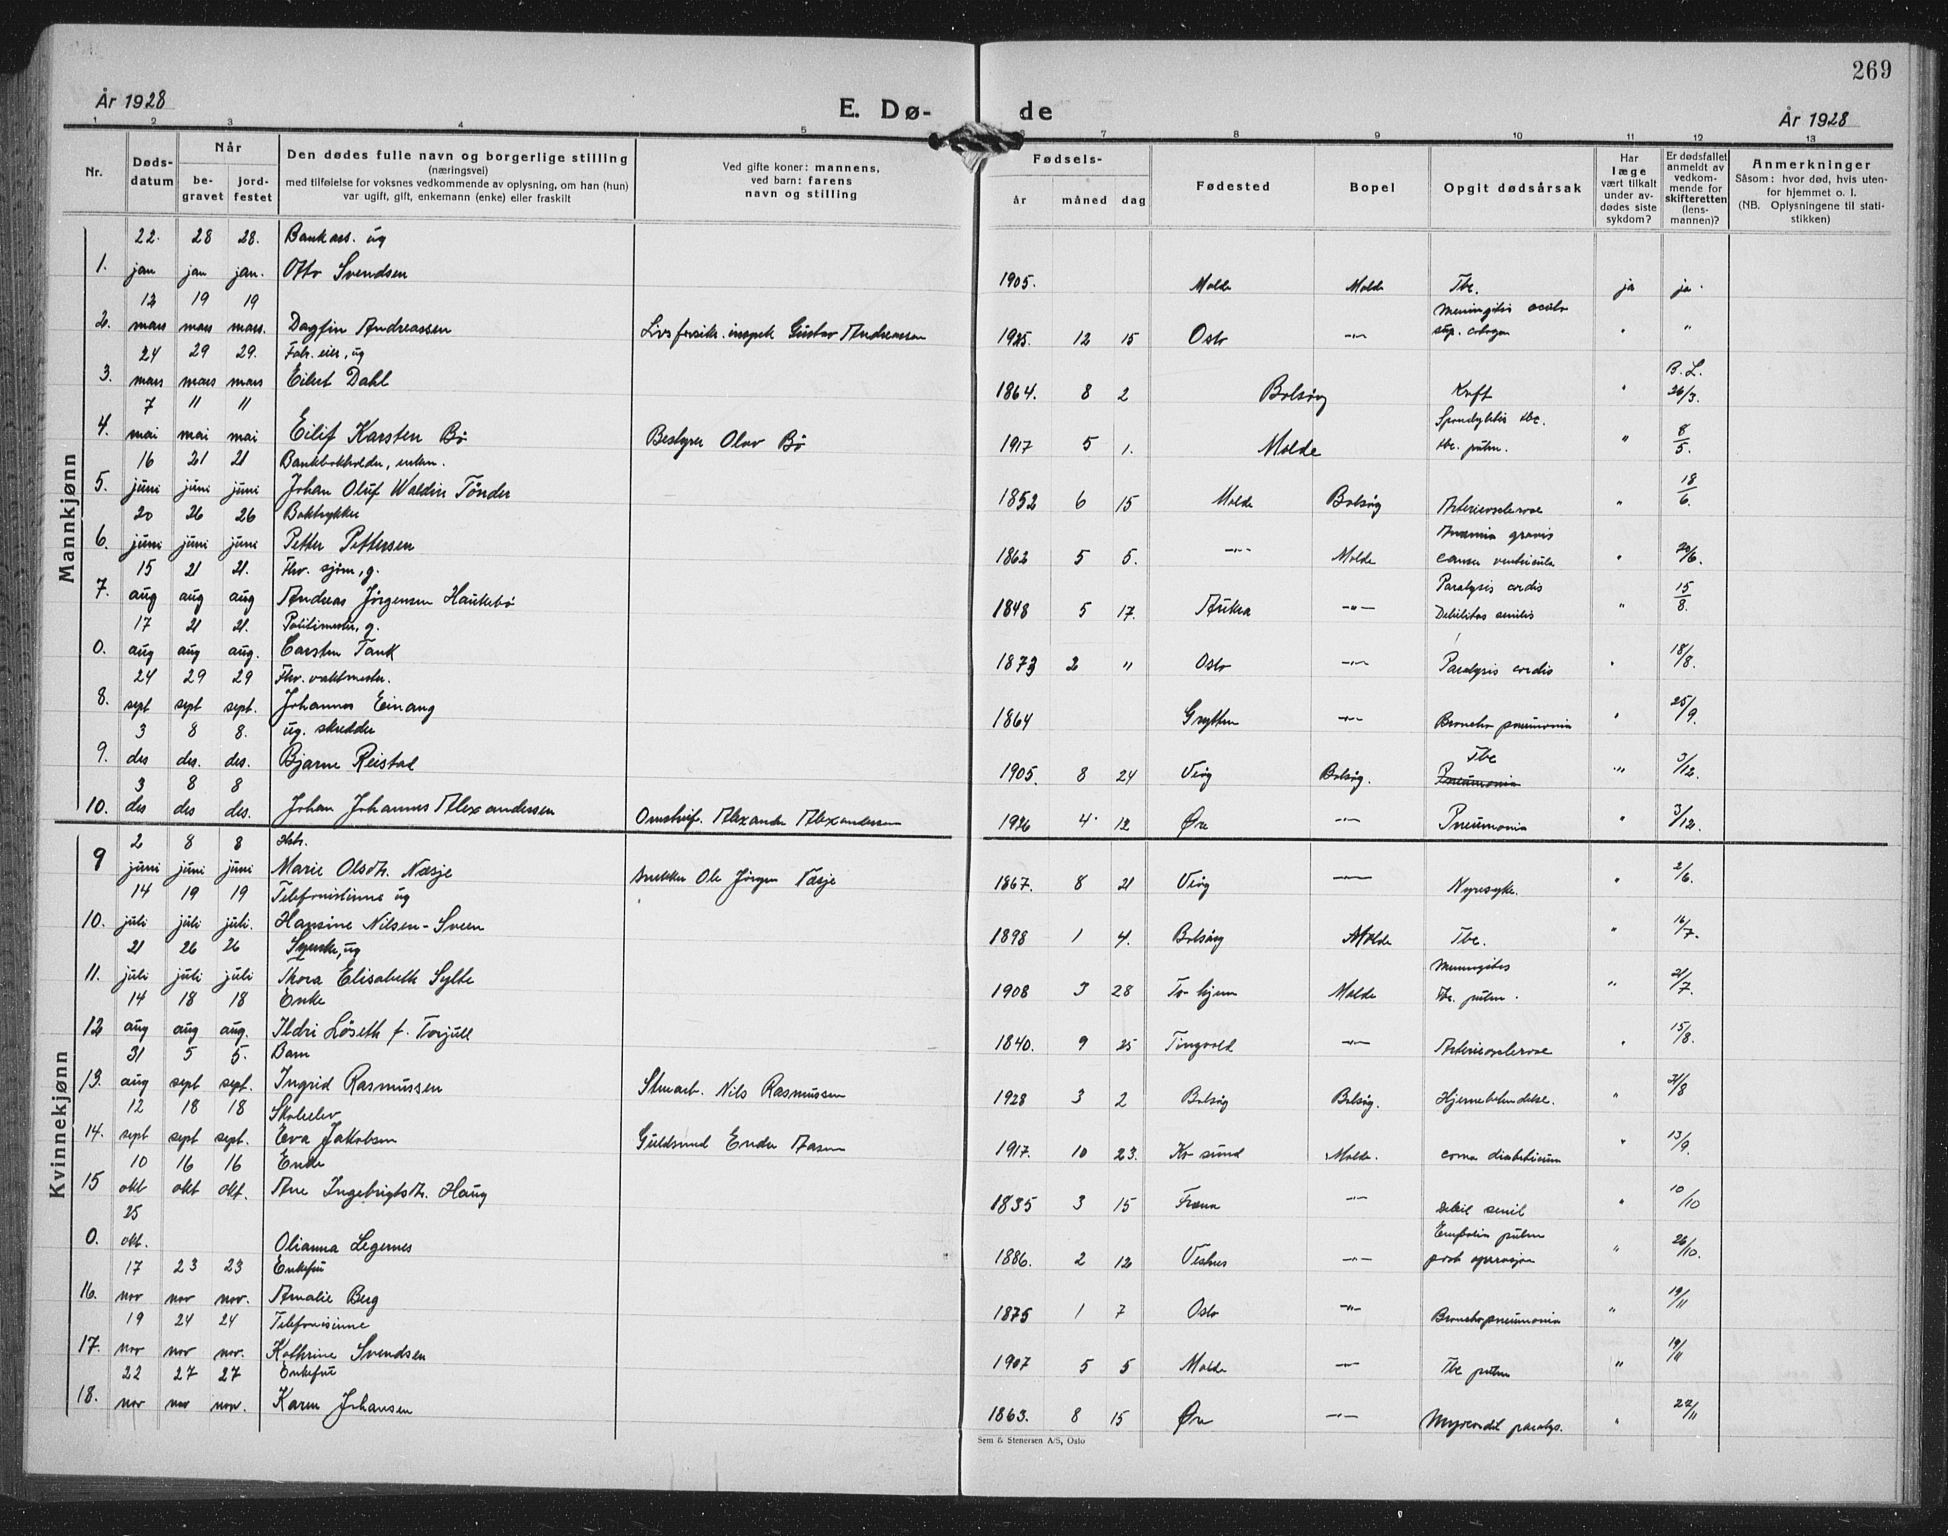 269
År 1928
E. Dø-de
År 1928
1 2 3 4 5 6 7 8 9 10 11 12 13
Nr.
Døds-datum
Når
be-gravet
jord-festet
Den dødes fulle navn og borgerlige stilling
(næringsvei)
med tilføielse for voksnes vedkommende av oplysning, om han (hun)
var ugift, gift, enkemann (enke) eller fraskilt
Ved gifte koner: mannens,
ved barn: farens
navn og stilling
Fødsels-
år måned dag
Fødested
Bopel
Opgit dødsårsak
Har læge vært tilkalt under av-dødes siste sykdom?
Er dødsfallet anmeldt av vedkom-mende for skifteretten (lens-mannen)?
Anmerkninger
Såsom: hvor død, hvis uten-for hjemmet o. l.
(NB. Oplysningene til stati-stikken)
Mannkjønn
22. 28 28. Bankass. ug
1. jan jan jan. Otto Svendsen 1905. Molde Molde Tbc. ja ja.
12 19 19 Meningitis
2. mars mars mars. Dagfin Andreassen Livsforsikr. inspek Gustav Andreassen 1925. 12 15 Oslo —"— " "
24 29 29. Fabr. eier, ug B. L.
3. mars mars mars Eilert Dahl 1864. 8 2 Bolsøy Kreft " 26/3.
7 " " Spondylitis tbc.
4. mai mai mai Eilif Karsten Bø Bestyrer Olav Bø 1917 5 1. Molde tbc. pulm. " 8/5.
16 21 21 Bankbokholder, enkem.
5. juni juni juni Johan Oluf Waldin Tønder 1852 6 15 Molde Bolsøy Arteriosclerose " 18/6.
20 26 26 Boktrykker Anæmia gravis
6. juni juni juni Petter Pettersen 1862 5 5. —"— Molde cancer ventricula " 20/6.
15 21 21. Fhv. sjøm, g. Paralysis cordis
7. aug aug aug Andreas Jørgensen Haukebø 1848 5 17. Aukra —"— Debilitas senilis " 15/8.
17 21 21. Politimester, g.
0. aug aug aug. Carsten Tank 1873 2 " Oslo —"— Paralysis cordis " 18/8.
24 29 29 Fhv. vaktmester.
8. sept sept sept. Johannes Einang 1864 Grytten —"— Broncho pneumonia " 25/9.
3 8 8. ug. skredder Tbc
9. des des. des. Bjarne Reistad 1905. 8 24 Veøy Bolsøy. Pneumonia " 3/12.
3 8 8
10. des des des. Johan Johannes Alexandersen Omstreif. Alexander Alexandersen 1926 4 12 Øre —"— Pneumonia " 3/12.
Kvinnekjønn
2 8 8 Hstr.
9 juni juni juni Marie Olsdtr. Næsje snekker Ole Jørgen Næsje 1867. 8 21 Veøy —"— Nyresyke. " 2/6.
14 19 19 Telefonistinne ug
10. juli juli juli. Hansine Nilsen-Sveen 1898 1 4. Bolsøy Molde Tbc. " 16/7.
21 26 26 Syerske, ug Meningitis
11. juli juli juli Thora Elisabeth Sylte 1908 3 28 Tr-hjem Molde tbc. pulm. " 21/7.
14 18 18 Enke
12 aug aug aug. Ildri Løseth f. Torjull 1840. 9 25 Tingvold —"— Arteriosclerose " 15/8.
31 5 5. Barn
13. aug sept sept. Ingrid Rasmussen Stuearb. Nils Rasmussen 1928 3 2 Bolsøy Bolsøy. Hjernebetendelse. " 31/8
12 18 18 Skoleelev
14. sept sept sept. Eva Jakobsen Guldsmed Aasen 1917. 10 23. Kr-sund Molde. coma diabeticum " 13/9.
10 16 16 Enke
15 okt okt okt. Ane Ingebrigtsdtr. Haug 1835 3 15 Fræna —"— Debil senil " 10/10
25 Embolia pulm
0. okt. Olianna Legernes 1886. 2 12 Vestnes —"— post operasjon " 26/10.
17 23 23 Enkefru
16. nov nov nov. Amalie Berg 1875 1 7 Oslo —"— Bronchopneumonia " 19/11
19 24 24 Telefonisinne
17. nov nov nov. Kathrine Svendsen 1907 5 5 Molde —"— Tbc pulm " 19/11
22 27 27 Enkefru
18. nov nov nov. Karen Johansen 1863. 8 15 Øre —"— Myocardit paralys. " 22/11
Sem & Stenersen A/S, Oslo